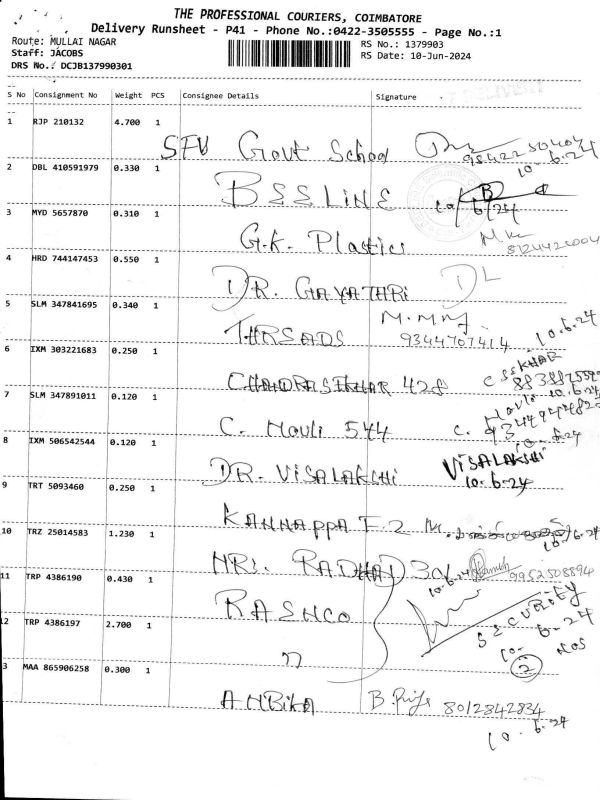 THE PROFESSIONAL COURIERS, COIMBATORE
Delivery Runsheet - P41 - Phone No.:0422-3505555 - Page No.:1
Route: MULLAI NAGAR
RS No.: 1379903
Staff: JACOBS
RS Date: 10-Jun-2024
DRS No.: DCJB137990301
S No Consignment No Weight PCS Consignee Details Signature
1 RJP 210132 4.700 1
Govt School
10-6-24
2 DBL 410591979 0.330 1
BSS LINE
10/6/24
3 MYD 5657870 0.310 1
G.K. Plastics
4 HRD 744147453 0.550 1
DR. GAYATHRI
5 SLM 347841695 0.340 1
THREADS 9344707414 10.6.24
6 IXM 303221683 0.250 1
CHANDRASEKHAR 428
7 SLM 347891011 0.120 1
C. Mouli 544
8 IXM 506542544 0.120 1
DR. VISALAKSHI VISALAKSHI
10.6.24
9 TRT 5093460 0.250 1
KANNAPPA F.2
10.6.24
10 TRZ 25014583 1.230 1
RADHA 301 10.6.24 9952508894
11 TRP 4386190 0.430 1
RASHCO
SECURITY
10-6-24
12 TRP 4386197 2.700 1
"
2 NOS
13 MAA 865906258 0.300 1
AMBIKA 8012842834
10.6.24